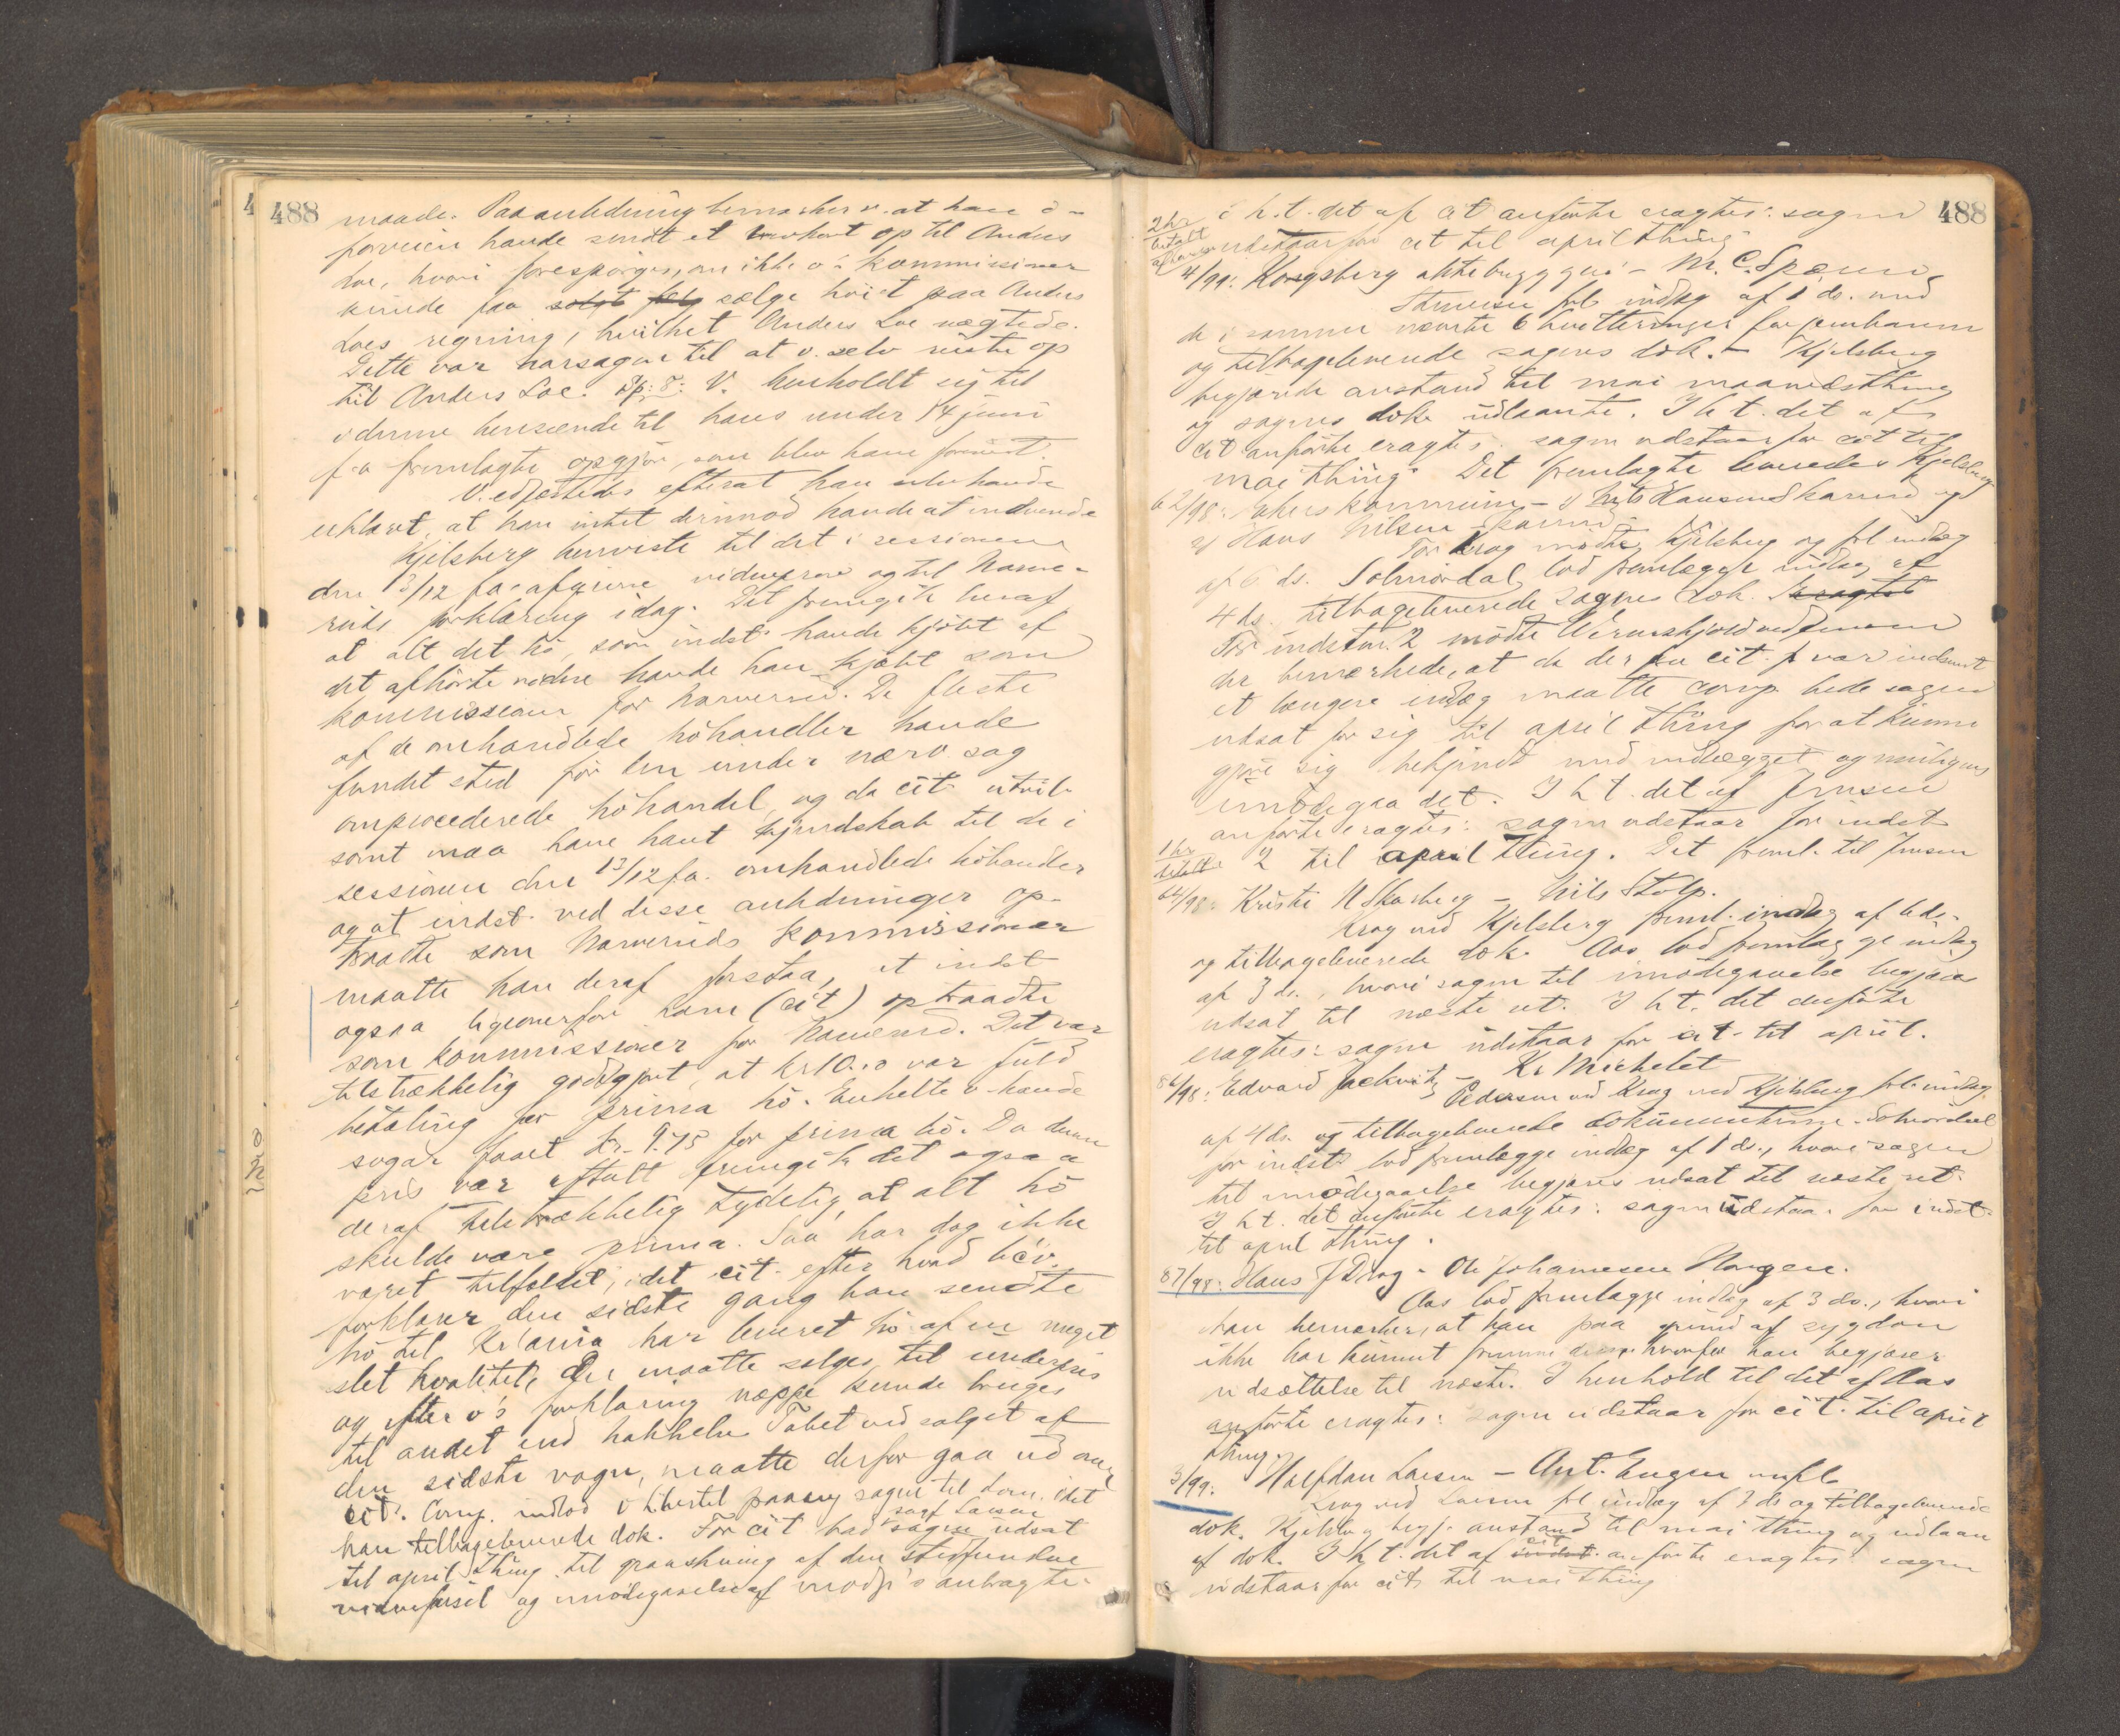 488
maade. Paa anledning bemærker v. at han i
forveien havde sendt et brevkort op til Anders
Loe, hvori forespörges, om ikke v's kommissionær
kunde faa sælge höiet paa Anders
Loes regning, hvilket Anders Loe nægtede.
Dette var aarsagen til at v. selv reiste op
til Anders Loe. Sp: 8: V. henholdt sig til
i denne henseende til hans under 14 juni
f. a. fremlagte opgjör, som blev ham forevist.
V. edfæstedes efterat han havde
erklæret, at han intet derimod havde at indvende
Kjelsberg henviste til det i sessionen
den 13/12 f. a. afgivne vidneprov og til Narve-
ruds forklaring idag. Det fremgik heraf
at alt det hö, som indst. havde kjöbt af
det afhörte vidne havde han kjöbt som
kommissionær for Narverud. De fleste
af de omhandlede höhandler havde
fundet sted för den under nærv. sag
omprocederede höhandel, og da cit. utvil-
somt maa have havt kjendskab til de i
sessionen den 13/12 f. a. omhandlede höhandler
og at indst. ved disse anledninger op-
traadte som Narveruds kommissionær
maatte han deraf forstaa, at indst
ogsaa ligeoverfor ham (cit) optraadte
som kommissionær for Narverud. Det var
tilstrækkelig godtgjort, at kr 10.00 var fuld
betaling for prima hö. Enkelte v. havde
sogar faaet kr. 9.75 for prima hö. Da denne
pris var aftalt fremgik det ogsaa
deraf tilstrækkelig tydelig, at alt hö
skulde være prima. Saa har dog ikke
været tilfældet, idet cit. efter hvad
forklarer den sidste gang han sendte
hö til Kr'ania har leveret hö af en meget
slet kvalitet, der maatte sælges til underpris
og efter v's forklaring neppe kunde bruges
til andet end hakkelse. Tabet ved salget af
den sidste vogn, maatte derfor gaa ud over
cit. Comp. indlod i tilfælde sagen til dom, idet
han tilbageleverede dok. For cit bad sagf. Larsen sagen udsat
til april thing til granskning af den stedfundne
vidneförsel og imödegaaelse af modp's anbragte.

488
i h. t. det af cit anförte eragtes: sagen
2 kr
betalt
udstaar for cit til april thing
4/99: Kongsberg aktiebryggeri – M. C. Spæren
frl indlæg af 1 ds. med
de i samme nævnte 6 kvitteringer for jernbanen
og tilbageleverede sagens dok. – Kjelsberg
begjærede anstand til mai maanedsthing
og sagens dok udlaante. I h t. det af
cit anförte eragtes: sagen udstaar for cit til
mai thing. Det fremlagte leveredes Kjelsberg
62/98: Akers kommune – 1) Nils Hansen Skarud og
2) Hans Nilsen Skarud
For Krag mödte Kjelsberg og frl indlæg
af 6 ds. Solmördal lod fremlægge indlæg af
4 ds. tilbageleverede sagens dok.
For indstvn. 2 mödte Wernskjold ved Jensen
der bemærkede, at da der fra cit. p var indsendt
et længere indlæg maatte comp. bede sagen
udsat for sig til april thing for at kunne
gjöre sig bekjendt med indlægget og muligens
imödegaa det. I h t. det af Jensen
anförte eragtes: sagen udstaar for indst
1 kr
betalt
2 til april thing. Det freml. til Jensen
64/98: Kristi N Skarberg – Nils Stolp.
Krag ved Kjelsberg freml. indlæg af 6 ds.
og tilbageleverede dok. Aas lod fremlægge indlæg
af 3 ds., hvori sagen til imödegaaelse begjæres
udsat til næste ret. I h t. det anförte
eragtes: sagen udstaar for cit. til april.
86/98: Edvard Jackwitz – Kr Michelet
Pedersen ved Krag ved Kjelsberg frl indlæg
af 4 ds. og tilbageleverede dokumenterne. Solmördal
for indst. lod fremlægge indlæg af 1 ds., hvori sagen
til imödegaaelse begjæres udsat til næste ret.
I h t. det anförte eragtes: sagen udstaar for indst.
til april thing.
87/98: Hans J Drag – Ole Johannesen Haugen.
Aas lod fremlægge indlæg af 3 ds., hvori
han bemærker, at han paa grund af sygdom
ikke har kunnet fremme hvorfor han begjærer
udsættelse til næste. I henhold til det af Aas
anförte eragtes: sagen udstaar for cit. til april
thing.
3/99: Halfdan Larsen – Ant. Engen
Krag ved Larsen frl indlæg af 3 ds og tilbageleverede
dok. Kjelsberg begj. anstand til mai thing og udlaan
af dok. I h t. det af cit. anförte eragtes: sagen
udstaar for cit. til mai thing